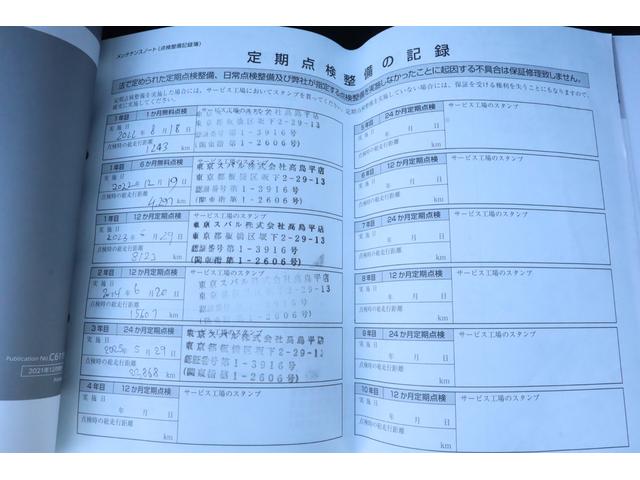 メンテナンスノート（点検整備記録簿）
定期点検整備の記録
法で定められた定期点検整備、日常点検整備及び弊社が指定する点検整備を実施しなかったことに起因する不具合は保証修理致しません。
定期点検整備を実施した場合には、サービス工場においてスタンプを貰ってください。
定期点検整備を実施していない場合には、保証を受ける権利を失うこともなりますので、
確実に実施してください。
1年目 1か月無料点検 サービス工場のスタンプ
実施日
2022年8月18日
点検時の総走行距離
1243 km
東京スバル株式会社高島平店
東京都板橋区坂下2-29-13
認証番号第1-3916号
(関東指第1-2606号)
1年目 6か月無料点検 サービス工場のスタンプ
実施日
2022年12月19日
点検時の総走行距離
4,297 km
東京スバル株式会社高島平店
東京都板橋区坂下2-29-13
認証番号第1-3916号
(関東指第1-2606号)
1年目 12か月定期点検 サービス工場のスタンプ
実施日
2023年6月29日
点検時の総走行距離
8123 km
東京スバル株式会社高島平店
東京都板橋区坂下2-29-13
認証番号第1-3916号
(関東指第1-2606号)
2年目 12か月定期点検 サービス工場のスタンプ
実施日
年6月20日
点検時の総走行距離
15607 km
東京スバル株式会社高島平店
東京都板橋区坂下2-29-13
認証番号第1-3916号
(関東指第1-2606号)
3年目 24か月定期点検 サービス工場のスタンプ
実施日
2025年5月29日
点検時の総走行距離
km
東京スバル株式会社高島平店
東京都板橋区坂下2-29-13
認証番号第1-3916号
(関東指第1-2606号)
4年目 12か月定期点検 サービス工場のスタンプ
実施日
年 月 日
点検時の総走行距離
km
5年目 24か月定期点検 サービス工場のスタンプ
実施日
年 月 日
点検時の総走行距離
km
6年目 12か月定期点検 サービス工場のスタンプ
実施日
年 月 日
点検時の総走行距離
km
7年目 24か月定期点検 サービス工場のスタンプ
実施日
年 月 日
点検時の総走行距離
km
8年目 12か月定期点検 サービス工場のスタンプ
実施日
年 月 日
点検時の総走行距離
km
9年目 24か月定期点検 サービス工場のスタンプ
実施日
年 月 日
点検時の総走行距離
km
10年目 12か月定期点検 サービス工場のスタンプ
実施日
年 月 日
点検時の総走行距離
km
Publication No.
2021年12月